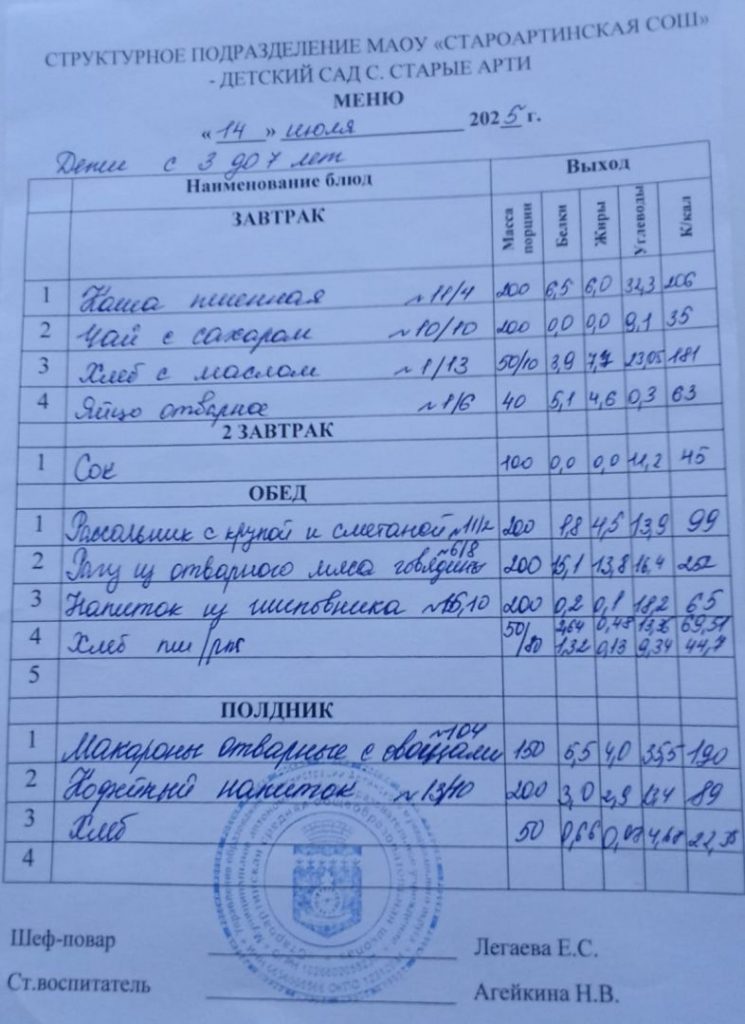 СТРУКТУРНОЕ ПОДРАЗДЕЛЕНИЕ МАОУ «СТАРОАРТИНСКАЯ СОШ»
- ДЕТСКИЙ САД С. СТАРЫЕ АРТИ
МЕНЮ
« 14 » июля 2025 г.
Дети с 3 до 7 лет
Наименование блюд Выход
ЗАВТРАК Масса порции Белки Жиры Углеводы К/кал
1 Каша пшенная ~11/4 200 6,5 6,0 32,3 206
2 Чай с сахаром ~10/10 200 0,0 0,0 9,1 35
3 Хлеб с маслом ~1/13 50/10 3,9 7,7 23,05 181
4 Яйцо отварное ~1/6 40 5,1 4,6 0,3 63
2 ЗАВТРАК
1 Сок 100 0,0 0,0 11,2 45
ОБЕД
1 Рассольник с крупой и сметаной 200 1,8 4,5 13,9 99
2 Рагу из отварного мяса говядины ~6/8 200 15,1 13,8 16,4 252
3 Напиток из шиповника 200 0,2 0,1 18,2 65
4 Хлеб пш/рж 50/ 2,64 0,48 69,51
1,32 0,13 9,34 44,7
5
ПОЛДНИК
1 Макароны отварные с овощами ~104 150 5,5 4,0 35,5 190
2 Кофейный напиток ~13/10 200 3,0 2,9 13,4 89
3 Хлеб 50 0,66 4,68 22,35
4
Шеф-повар Легаева Е.С.
Ст.воспитатель Агейкина Н.В.